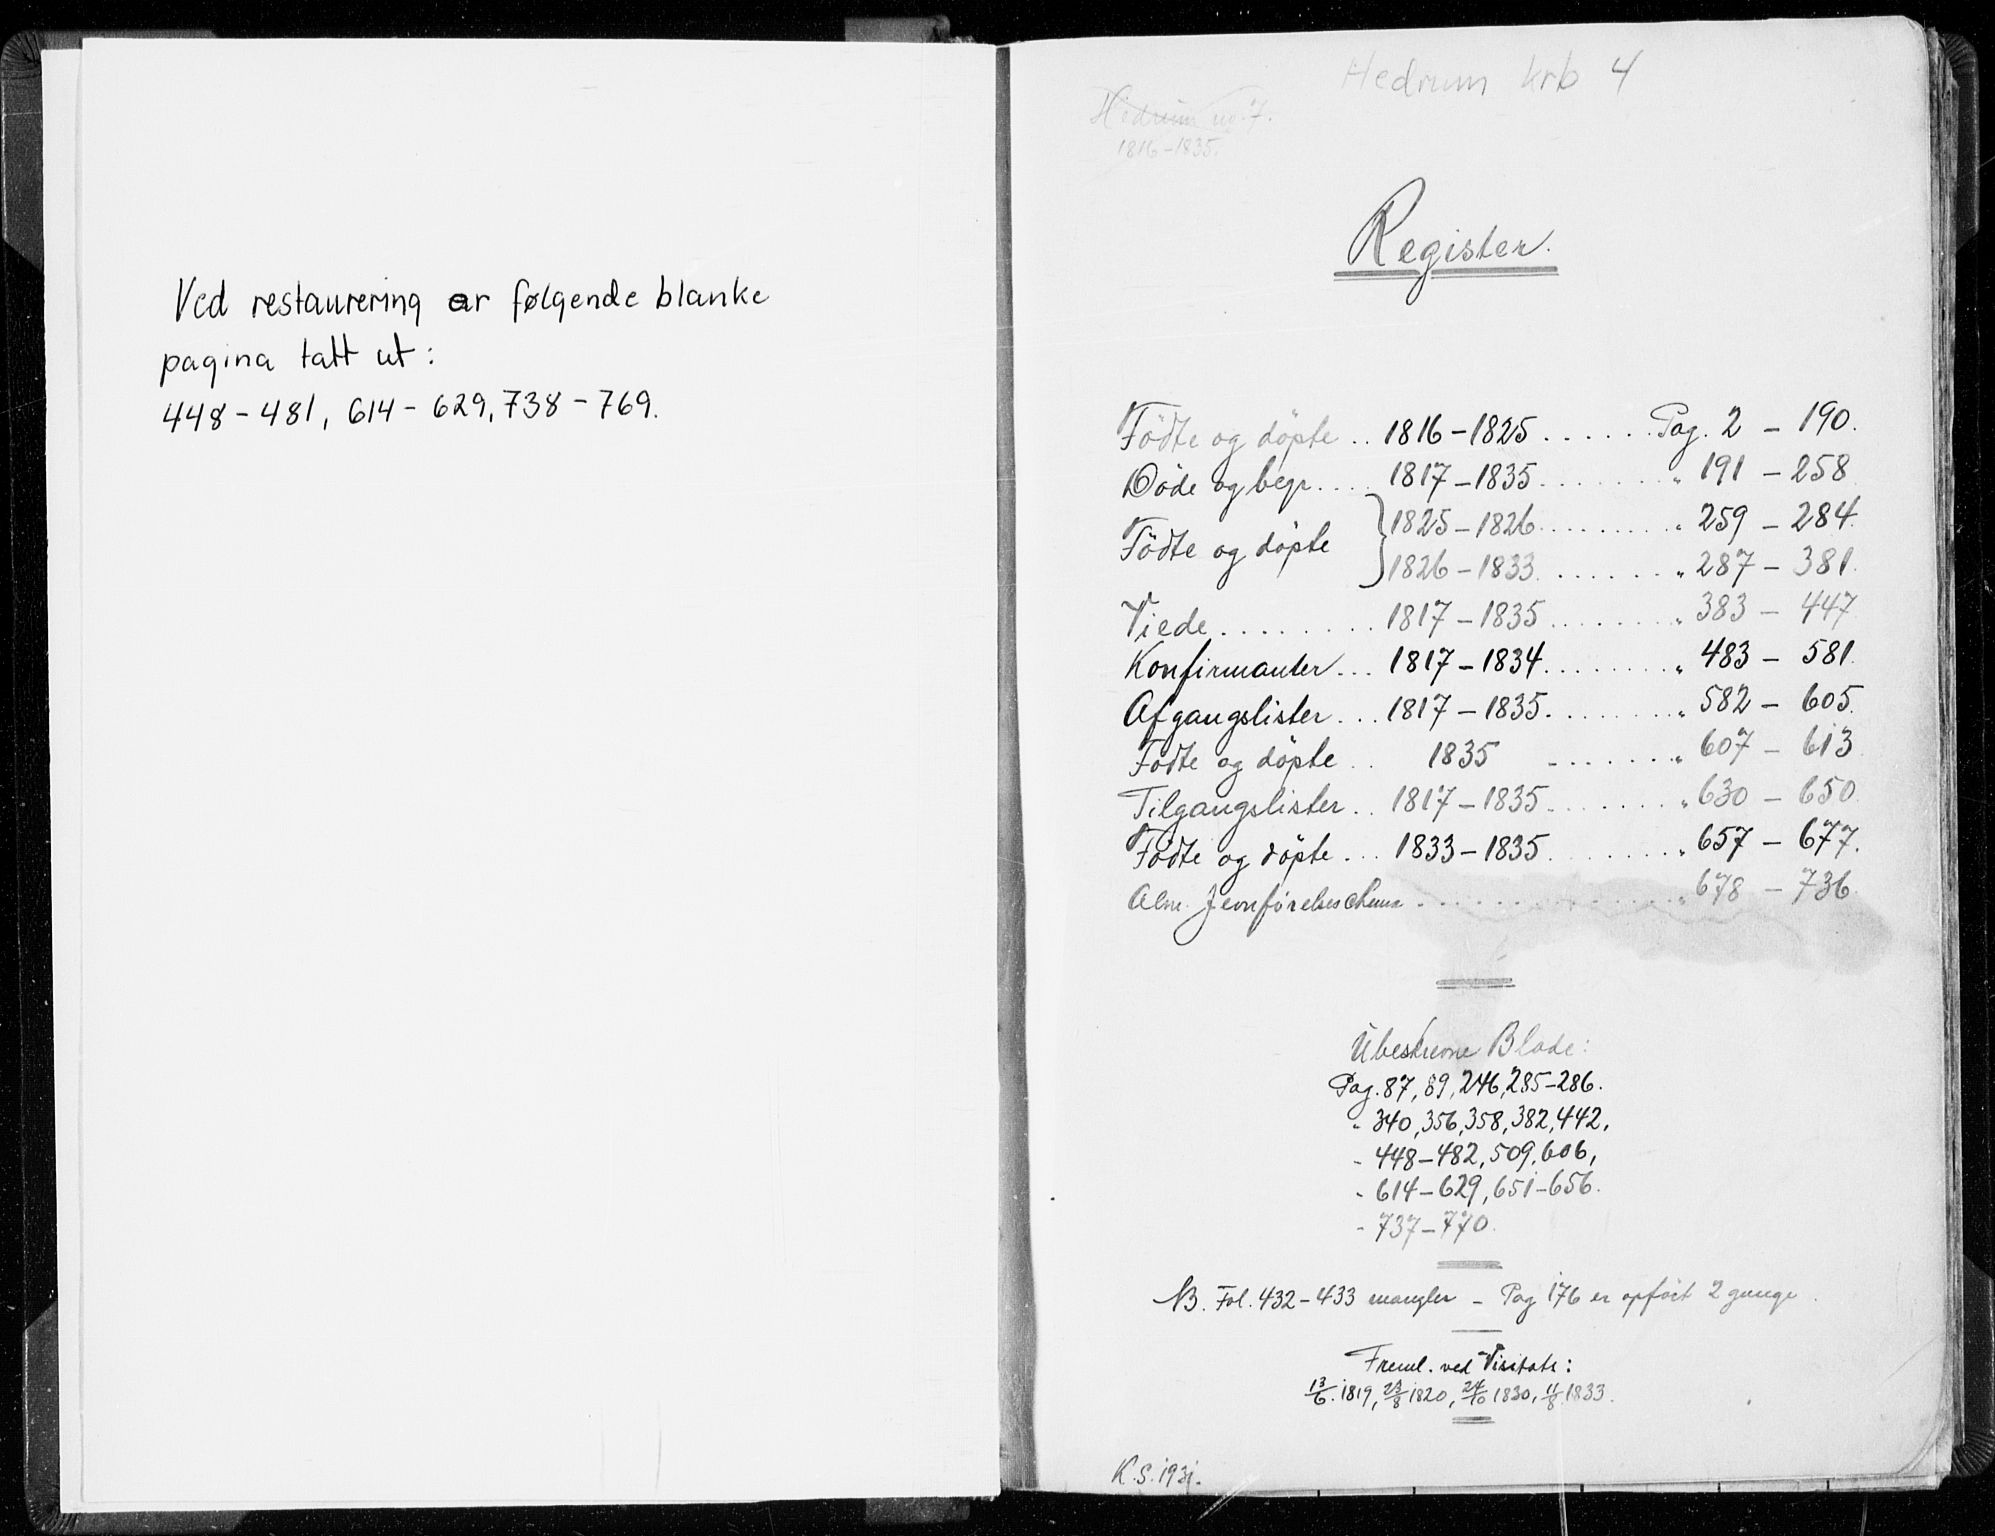 Ved restaurering er følgende blanke
pagina tatt ut:
448-481, 614-629, 738-769.
Hedrum krb 4
Hedrum no. 7.
1816-1835.
Register.
Födte og döpte .. 1816-1825 ...... Pag. 2 - 190.
Döde og begr. ... 1817-1835 ....... " 191 - 258
Födte og döpte } 1825-1826 ........ " 259 - 284.
1826-1833 ....... " 287 - 381.
Viede ........ 1817-1835 ........ " 383 - 447
Konfirmanter ... 1817-1834 ....... " 483 - 581.
Afgangslister ... 1817-1835 ....... " 582 - 605.
Födte og döpte .. 1835 - ...... " 607 - 613
Tilgangslister .. 1817-1835 ....... " 630 - 650
Födte og döpte ... 1833-1835 ....... " 657 - 677.
Alm. Jevnførelseschema .............. " 678 - 736.
Ubeskrevne Blade:
Pag. 87, 89, 246, 285-286.
" 340, 356, 358, 382, 442,
- 448-482, 509, 606,
- 614-629, 651-656.
- 737-770.
NB. Fol. 432-433 mangler - Pag 176 er opfört 2 gange.
Freml. ved Visitats:
13/6. 1819, 23/8 1820, 24/10 1830, 11/8 1833.
K.S. 1931.